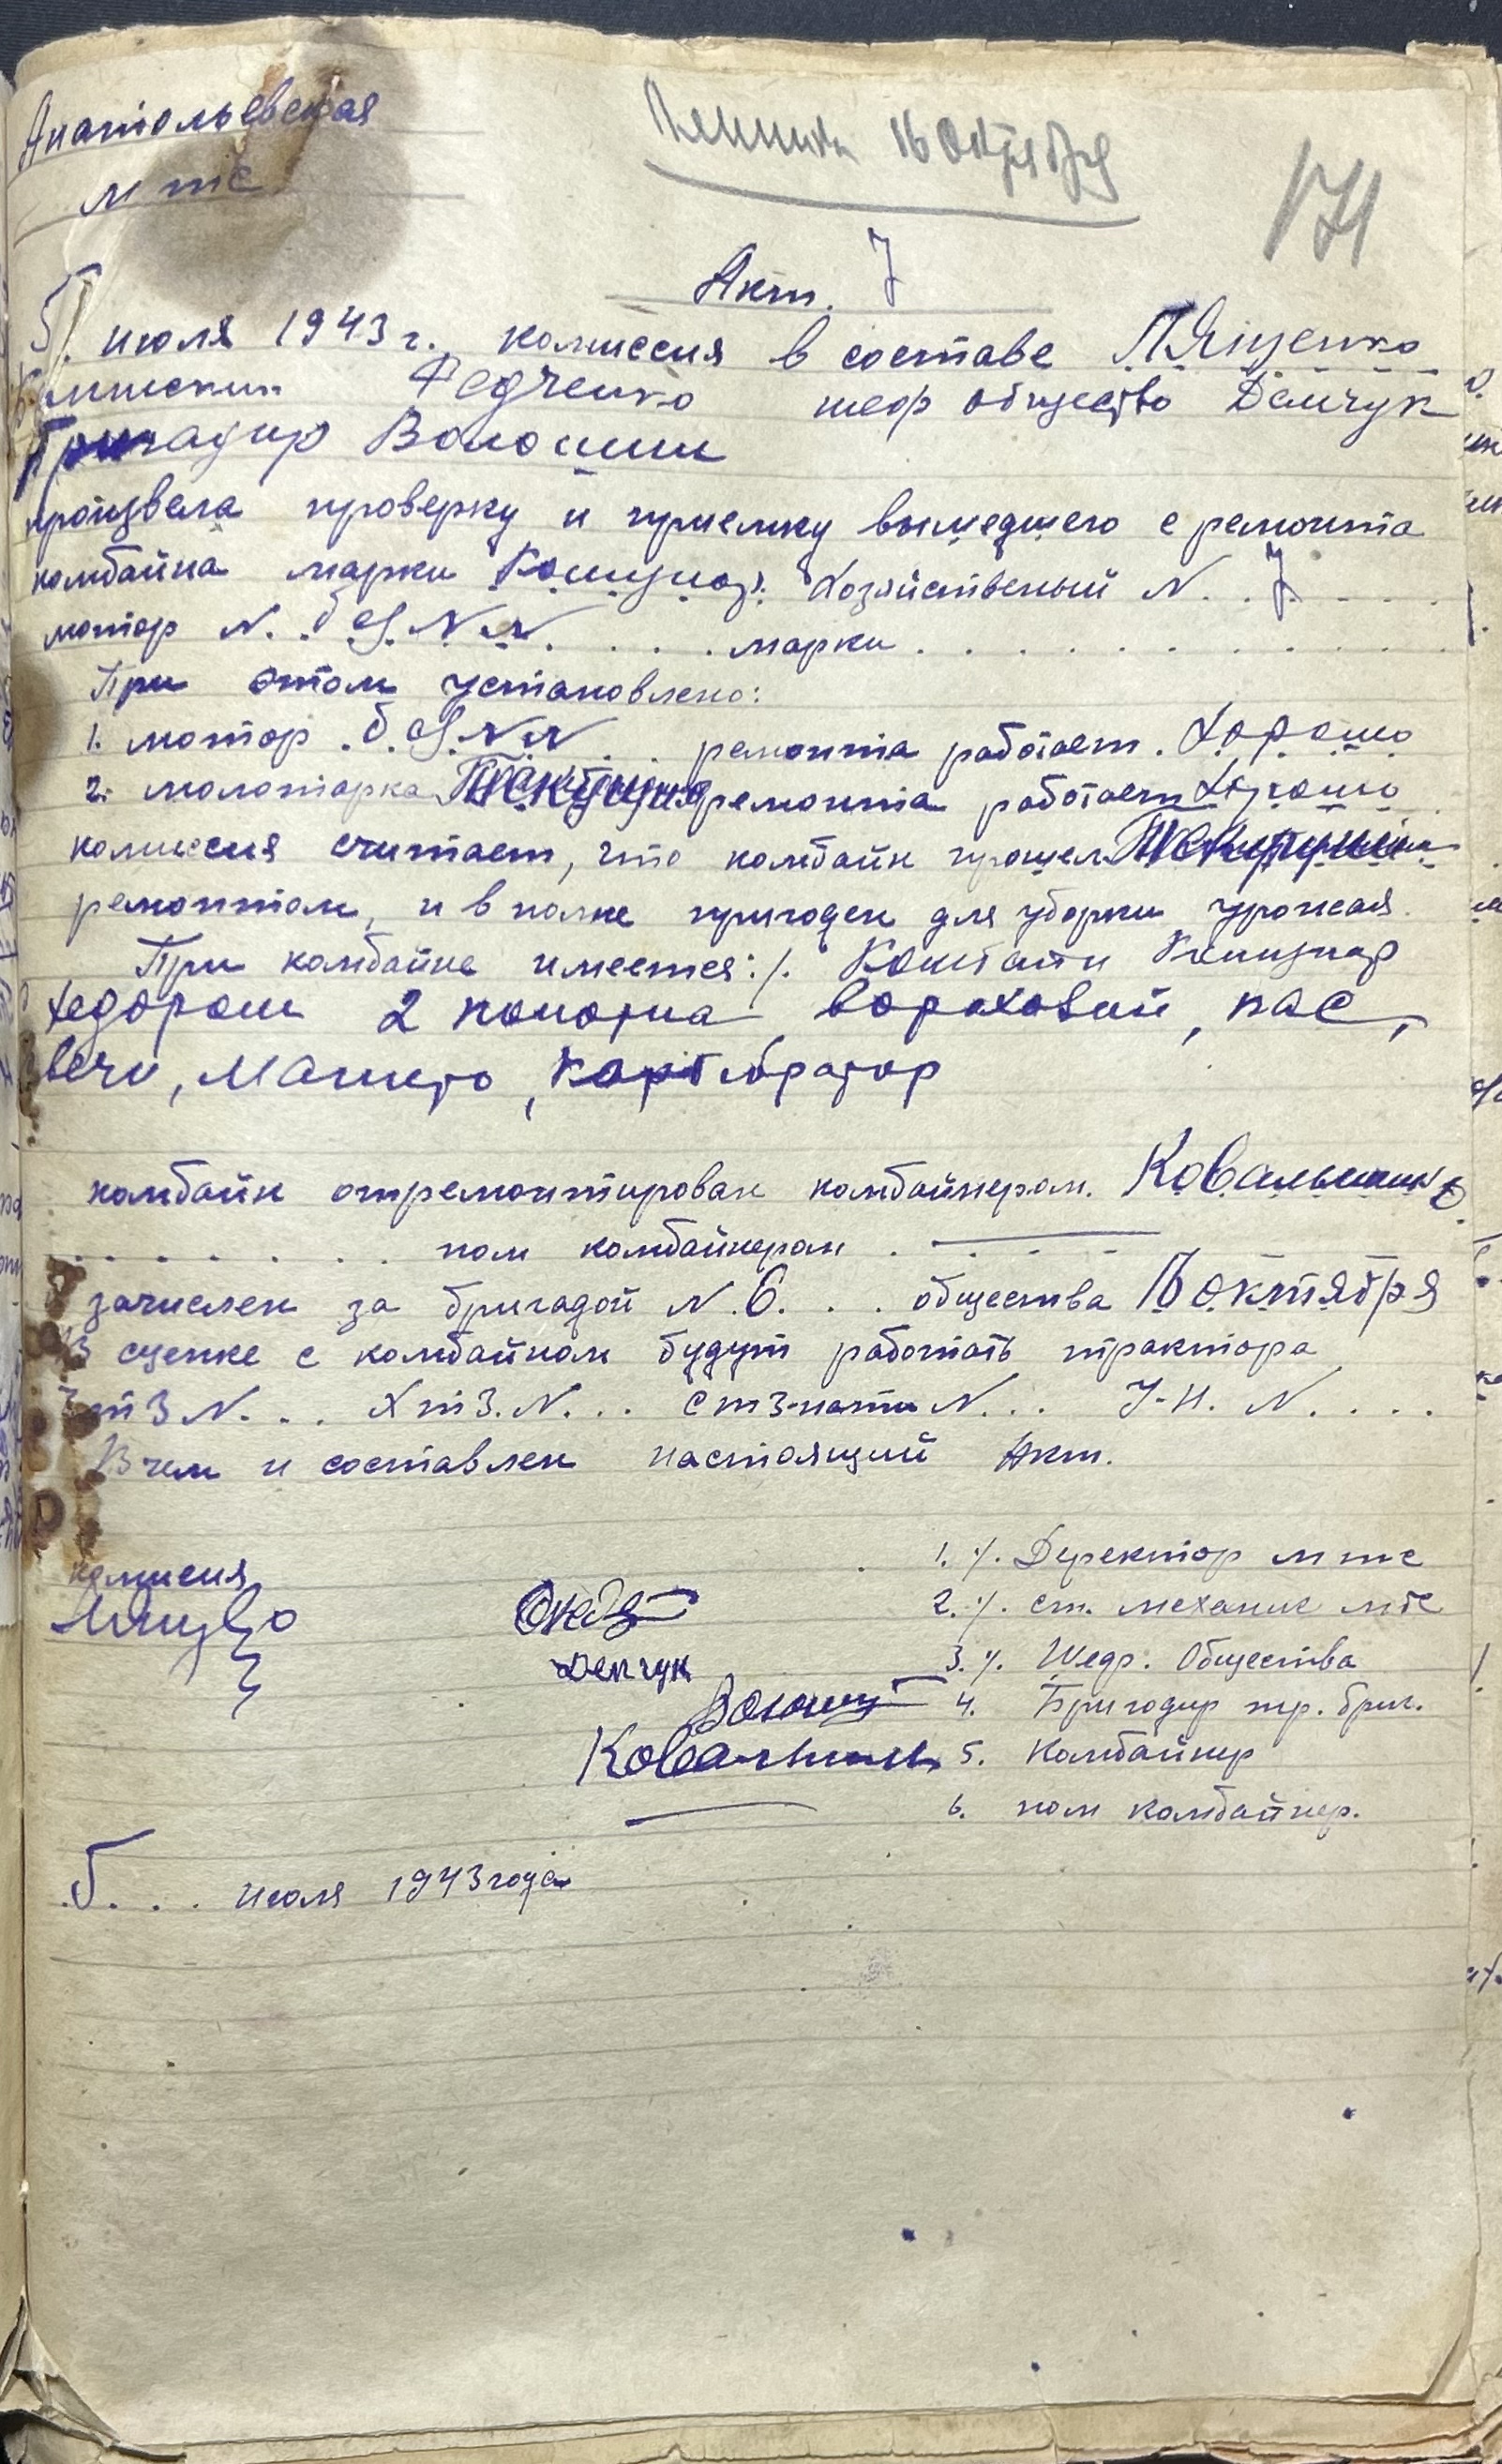 Анатольевская
мтс
16 октября
171
Акт. 7
5. июля 1943 г. комиссия в составе Л Яценко
Федченко шеф общество Демчук
Бригадир Волошин
произвела проверку и приемку вышедшего с ремонта
комбайна марки Комунар. Хозяйственый N. . 7 . . .
мотор N. . б N N . . . . марки . . . . . . . . .
При этом установлено:
1. мотор . б. N N . . ремонта работает. Хорошо
2. молотарка Текущия ремонта работает Хорошо
комиссия считает, что комбайн прошел
ремонтом, и в полне пригоден для уборки урожая.
При комбайне имеется: /. Комбайн Комунар
хедером 2 полотна вороховый, пас,
вечи, Магнето, Карбюратор
комбайн отремонтирован комбайнером. Ковальчик
. . . . . . . . пом комбайнером . . . .
зачислен за бригадой N. 6. . . общества 16 октября
В сцепке с комбайном будут работать трактора
ЧтЗ N. . . ХтЗ. N. . . СтЗ-нати N. . . У-Н. N. . . .
В чем и составлен настоящий Акт.
комисия
1. /. Деректор мтс
2. /. ст. механик мтс
Демчук 3. /. Шеф. Общества
Волошин 4. Бригодир тр. бриг.
5. Комбайнер
6. пом комбайнер.
. 5. . . июля 1943 года